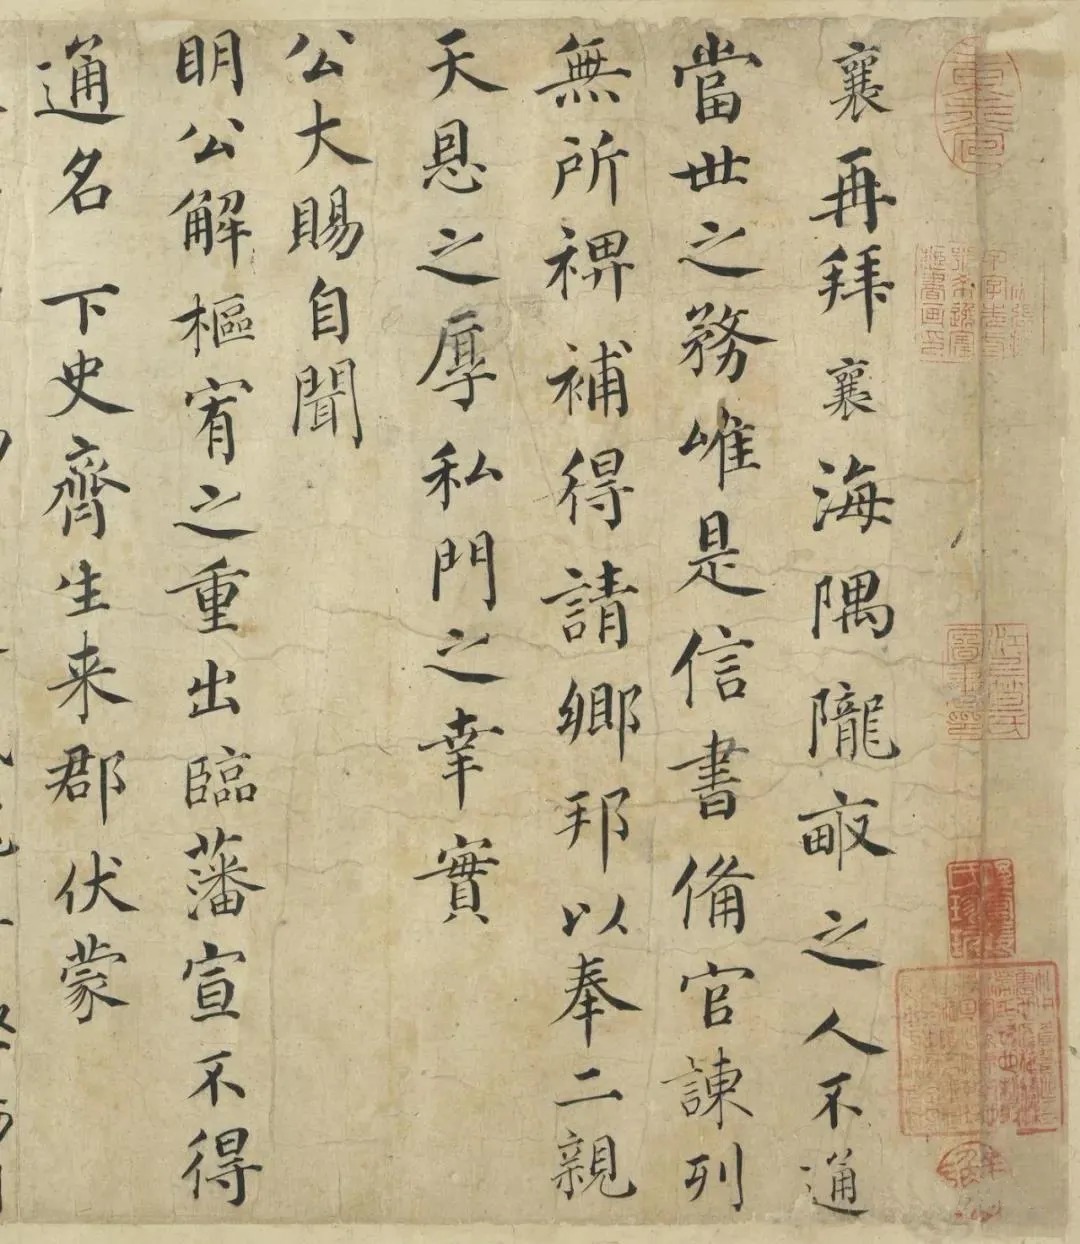 襄再拜襄海隅隴畝之人不通
當世之務唯是信書備官諫列
無所裨補得請鄉邦以奉二親
天恩之厚私門之幸實
公大賜自聞
明公解樞宥之重出臨藩宣不得
通名下史齊生来郡伏蒙